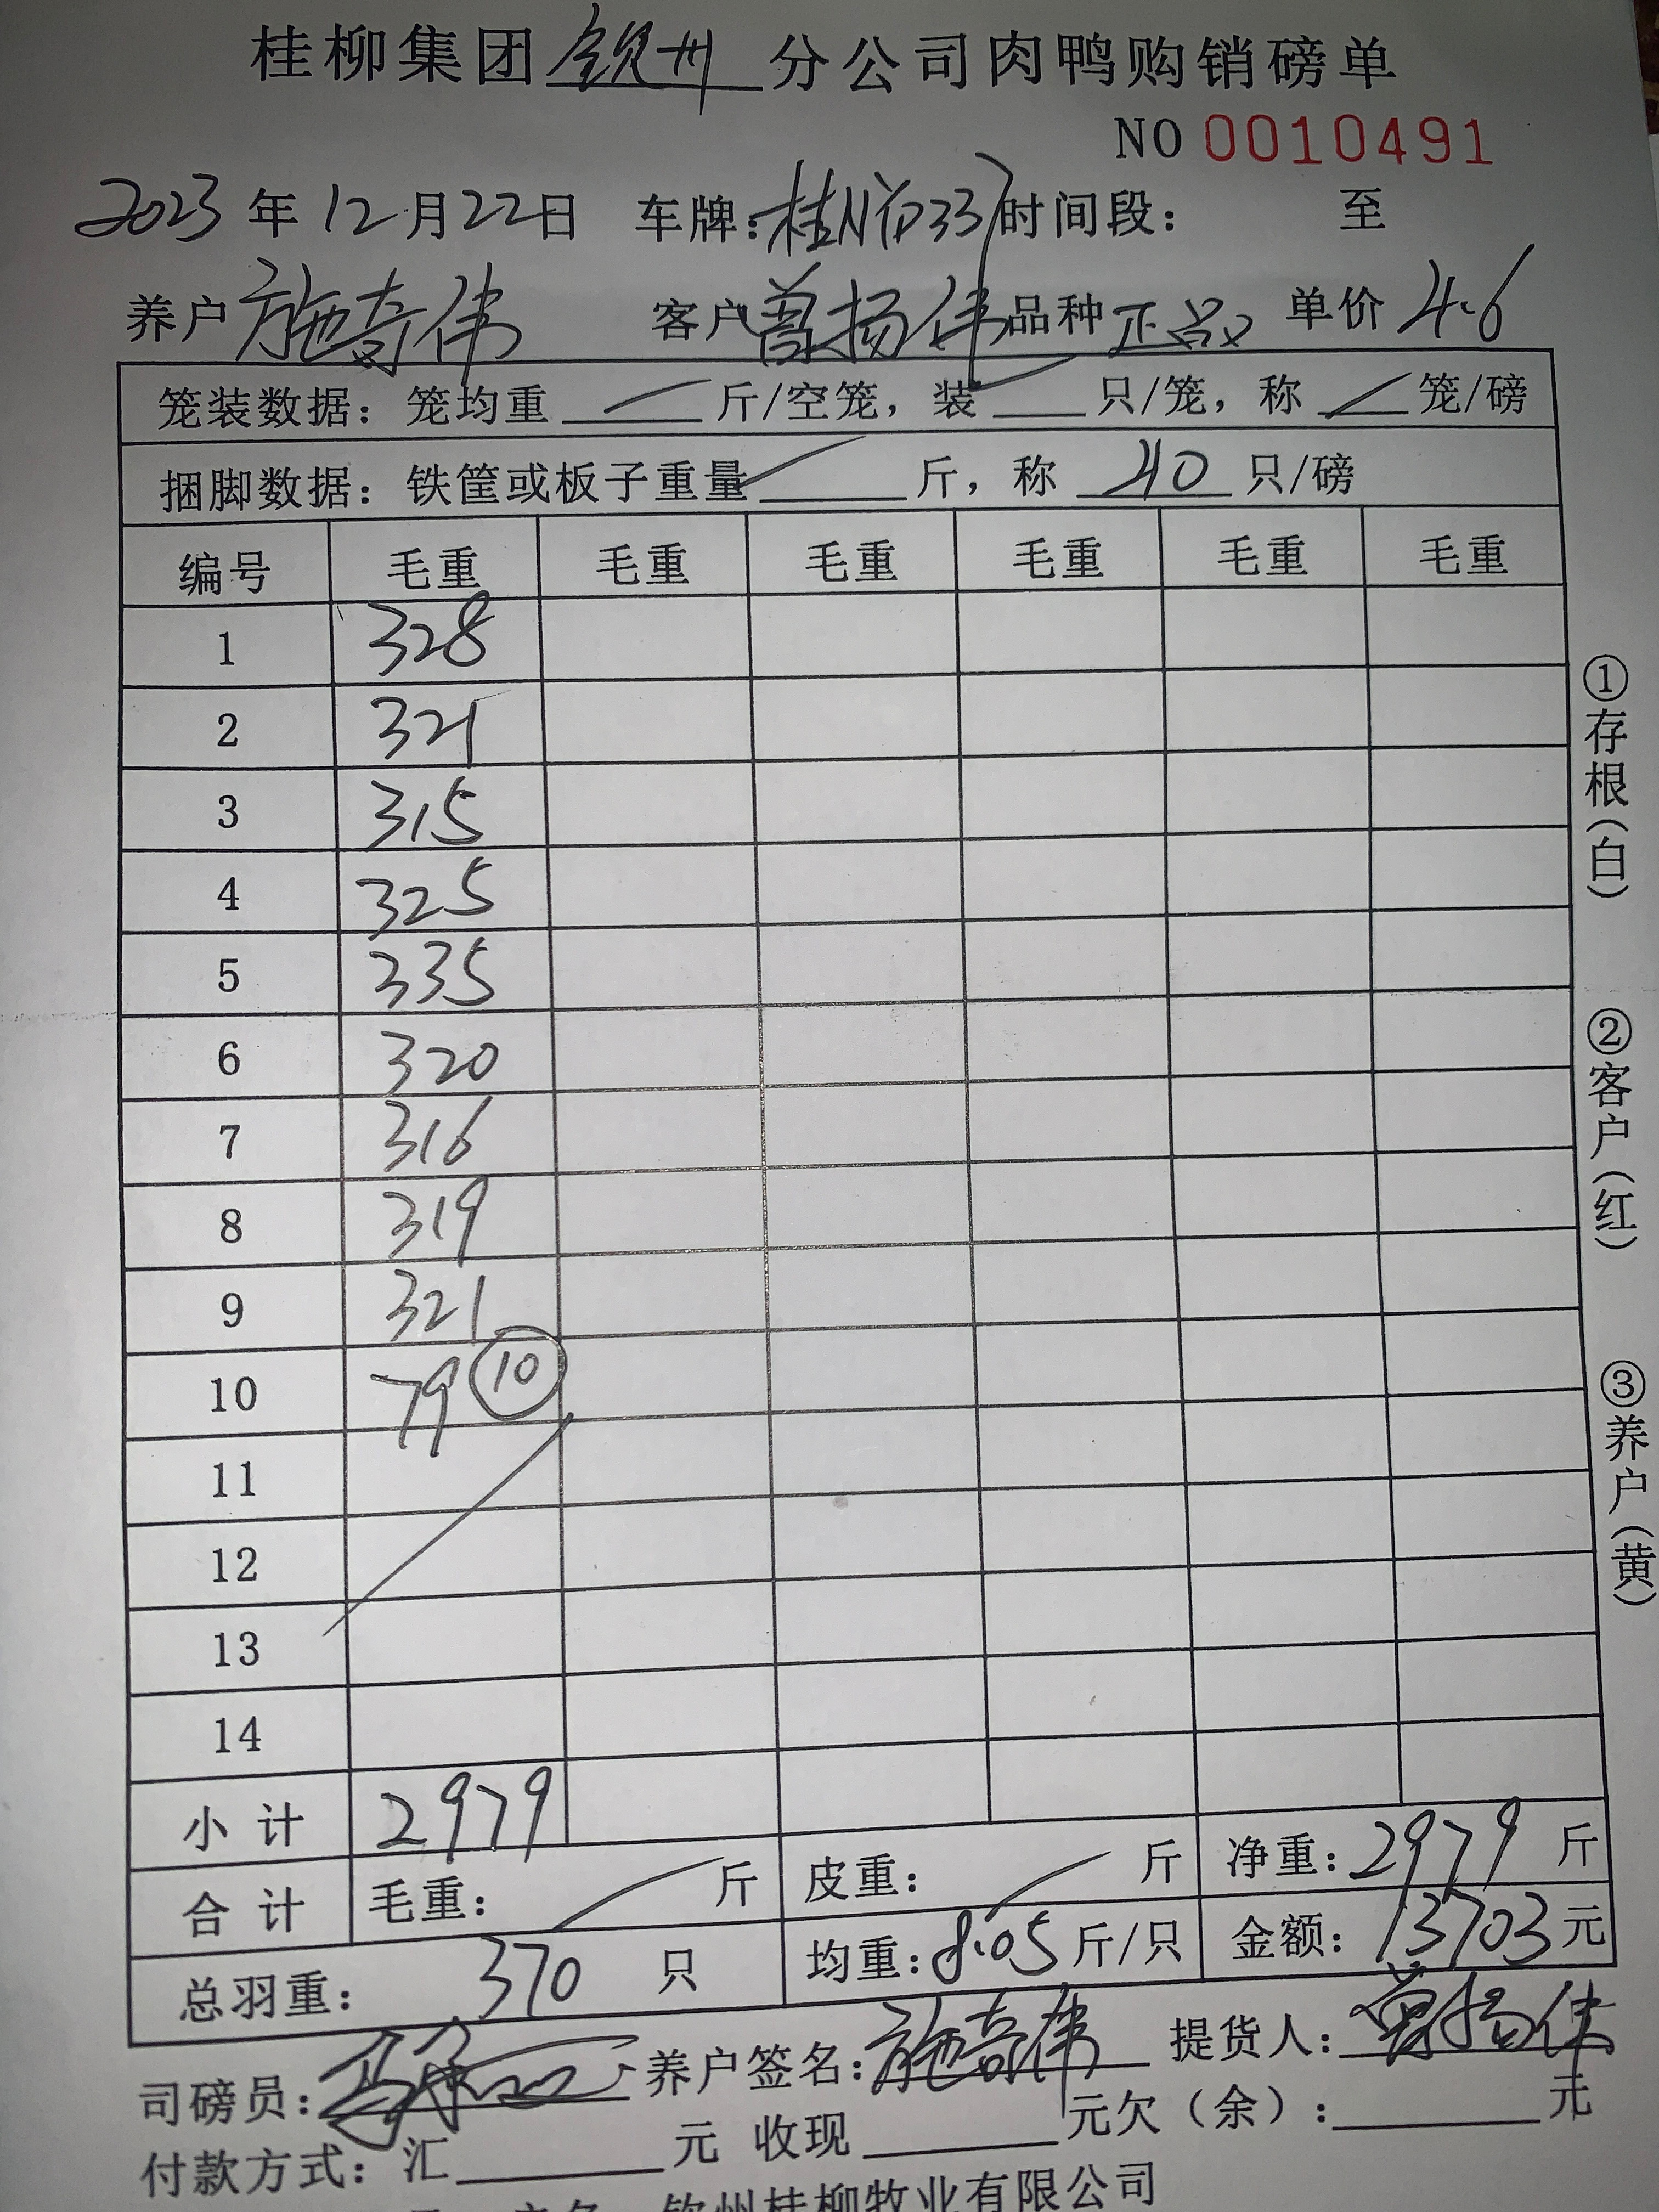 桂柳集团钦州分公司肉鸭购销磅单
NO 0010491
2023年12月22日 车牌: 时间段: 至
养户 施奇伟 客户 曾扬伟 品种 单价 4.6
笼装数据: 笼均重 斤/空笼, 装 只/笼, 称 笼/磅
捆脚数据: 铁筐或板子重量 斤, 称 40 只/磅
编号 毛重 毛重 毛重 毛重 毛重 毛重
1 328
2 321
3 315
4 325
5 335
6 320
7 316
8 319
9 321
10 79 ⑩
11
12
13
14
小计 2979
合计 毛重: 斤 皮重: 斤 净重: 2979 斤
总羽重: 370 只 均重: 8.05 斤/只 金额: 13703 元
司磅员: 养户签名: 施奇伟 提货人: 曾扬伟
付款方式: 汇 元 收现 元欠(余): 元
钦州桂柳牧业有限公司
①存根(白)
②客户(红)
③养户(黄)